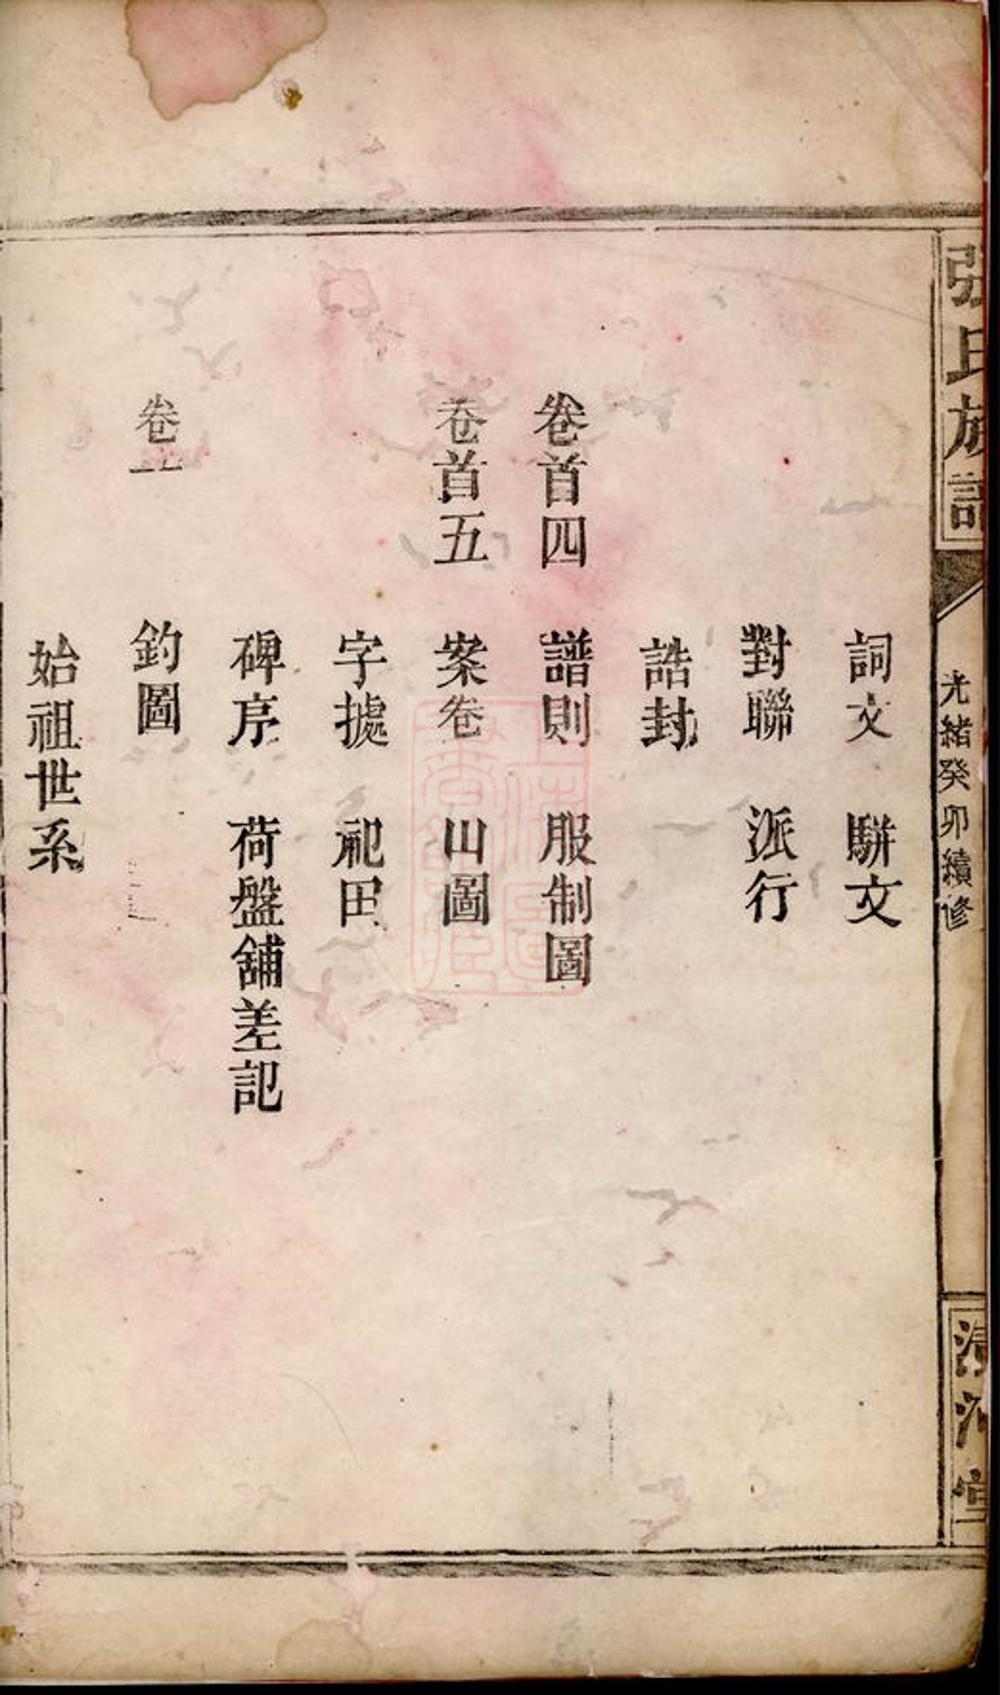 張氏族譜
光緒癸卯續修
清河堂
詞文 駢文
對聯 派行
誥封
卷首四 譜則 服制圖
卷首五 案卷 山圖
字據 祀田
碑序 荷盤舖差記
卷一 鈞圖
始祖世系
上海圖書館藏